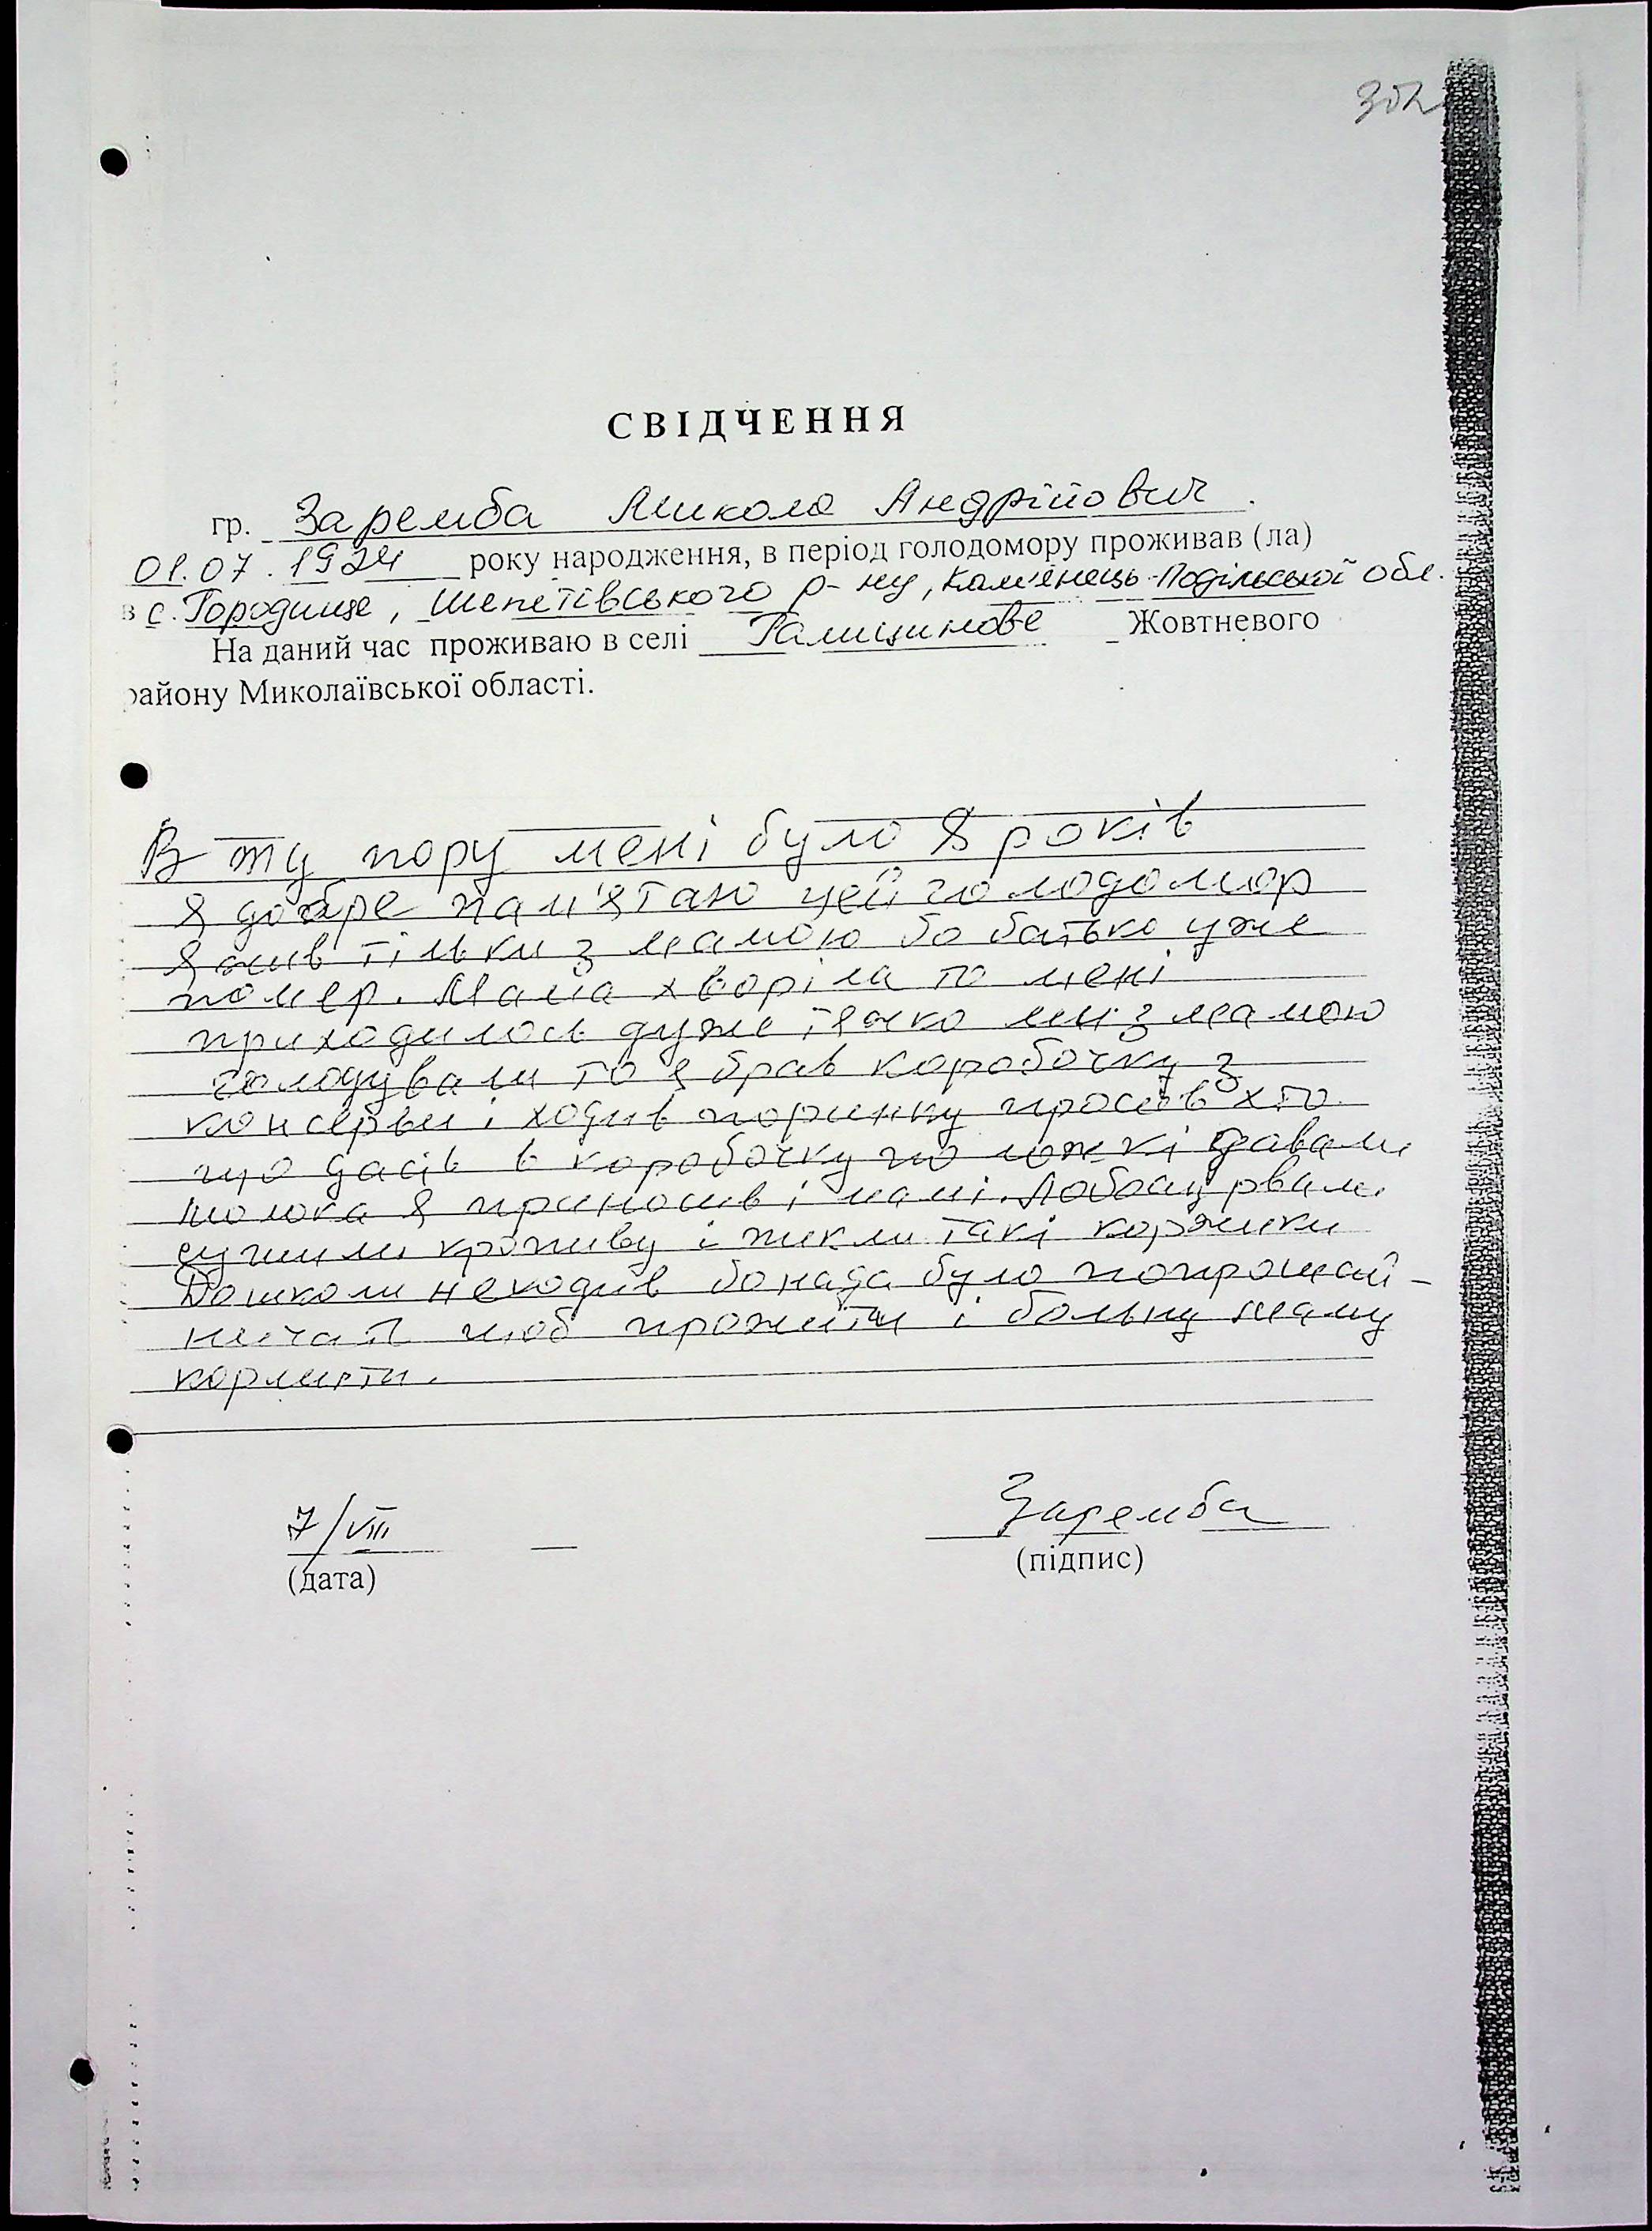 302
СВІДЧЕННЯ
гр. Заремба Микола Андрійович.
01.07.1924 року народження, в період голодомору проживав (ла)
в с. Городище, Шепетівського р-ну, Кам'янець-Подільської обл.
На даний час проживаю в селі Галицинове Жовтневого
району Миколаївської області.
В ту пору мені було 8 років
я добре пам'ятаю цей голодомор
я жив тільки з мамою бо батько уже
помер. Мама хворіла то мені
приходилось дуже тяжко ми з мамою
голодували то я брав коробочку з
консерви і ходив по ринку просив хто
що дасть в коробочку по ложкі давали
молока я приносив і мамі. Лободу рвали
сушили кропиву і пекли такі коржики
Дошколи неходив бо нада було попрошай-
ничать щоб прожити і больну маму
кормити.
7/VIII
Заремба
(дата)
(підпис)